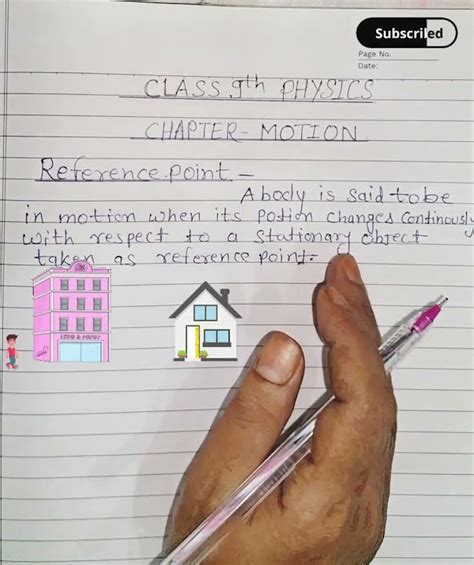 Subscribed
Page No.
Date:
CLASS 9th PHYSICS
CHAPTER - MOTION
Reference point -
A body is said to be
in motion when its potion changes continously
with respect to a stationary object
taken as reference point.